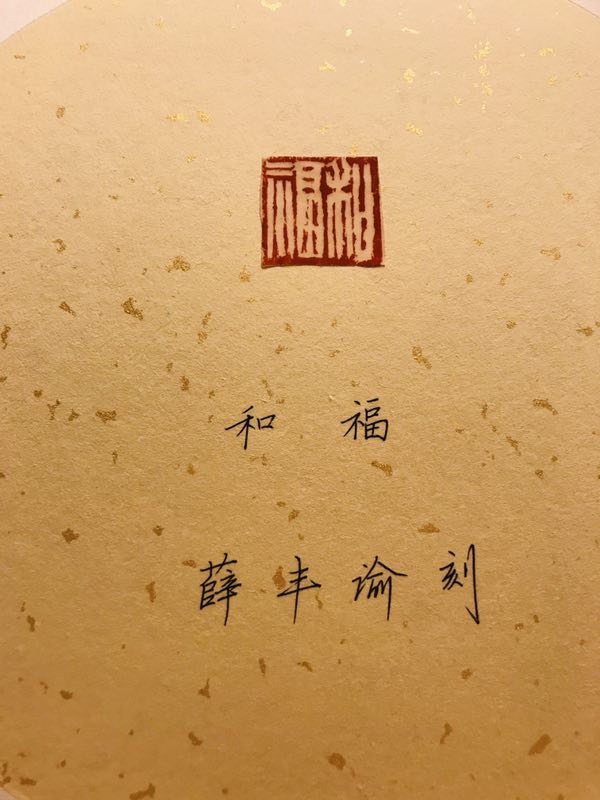 和福
和 福
薛丰谕刻